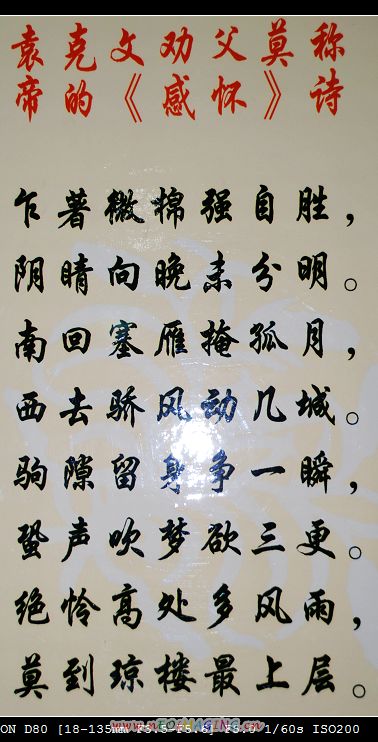 袁克文劝父莫称
帝的《感怀》诗
乍著微棉强自胜，
阴晴向晚未分明。
南回塞雁掩孤月，
西去骄风动几城。
驹隙留身争一瞬，
蛩声吹梦欲三更。
绝怜高处多风雨，
莫到琼楼最上层。
www.nEOiMAGING.cn
ON D80 [18-135mm F3.5-F5.6] 1/60s ISO200